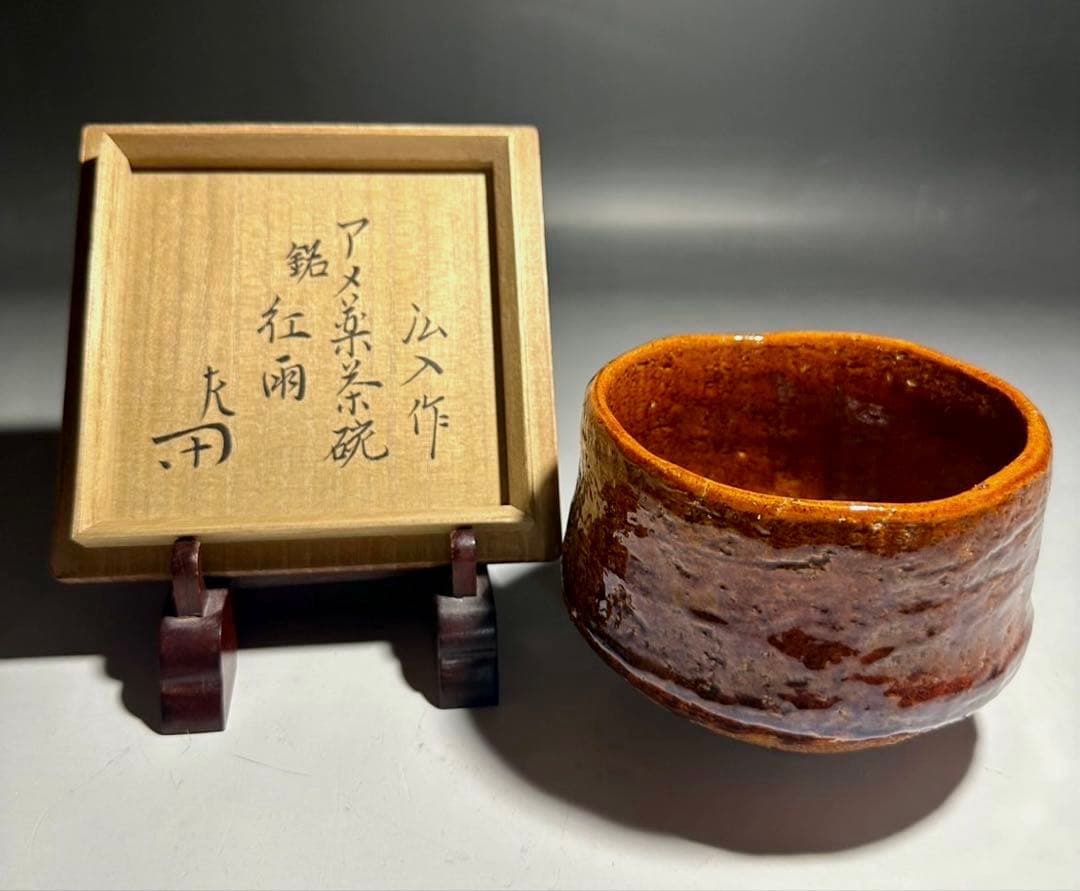 弘入作
アメ薬茶碗
銘 紅雨
左